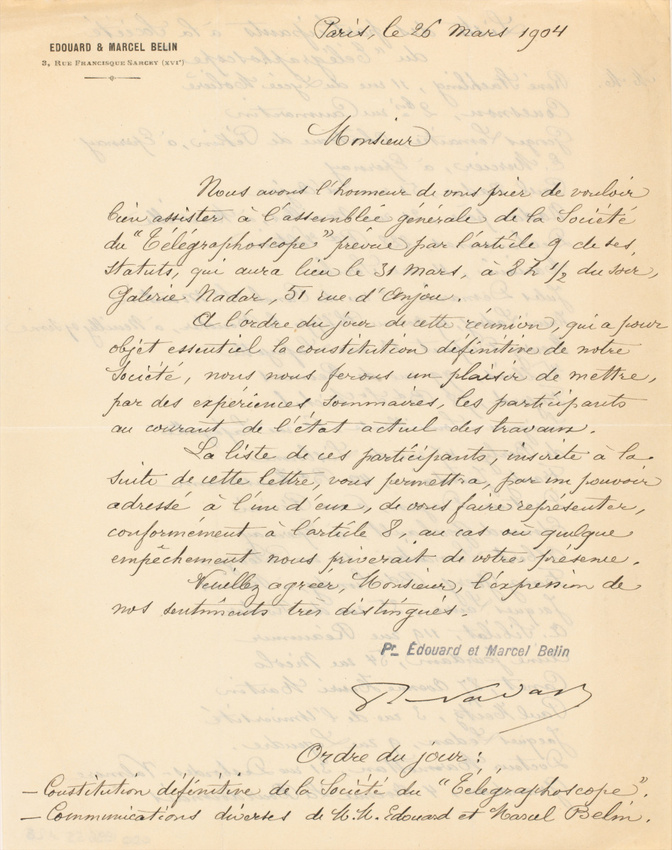 Paris, le 26 Mars 1904
EDOUARD & MARCEL BELIN
3, RUE FRANCISQUE SARCEY (XVIᵉ)
Monsieur
Nous avons l'honneur de vous prier de vouloir
bien assister à l'assemblée générale de la Société
du "Télégraphoscope" prévue par l'article 9 de ses
statuts, qui aura lieu le 31 Mars, à 8h 1/2 du soir,
Galerie Nadar, 51 rue d'Anjou.
A l'ordre du jour de cette réunion, qui a pour
objet essentiel la constitution définitive de notre
Société, nous nous ferons un plaisir de mettre,
par des expériences sommaires, les participants
au courant de l'état actuel des travaux.
La liste de ces participants, inscrite à la
suite de cette lettre, vous permettra, par un pouvoir
adressé à l'un d'eux, de vous faire représenter,
conformément à l'article 8, au cas où quelque
empêchement nous priverait de votre présence.
Veuillez agréer, Monsieur, l'expression de
nos sentiments très distingués.
Pr. Edouard et Marcel Belin
P. Nadar
Ordre du jour:
— Constitution définitive de la Société du "Télégraphoscope".
— Communications diverses de M.M. Edouard et Marcel Belin.